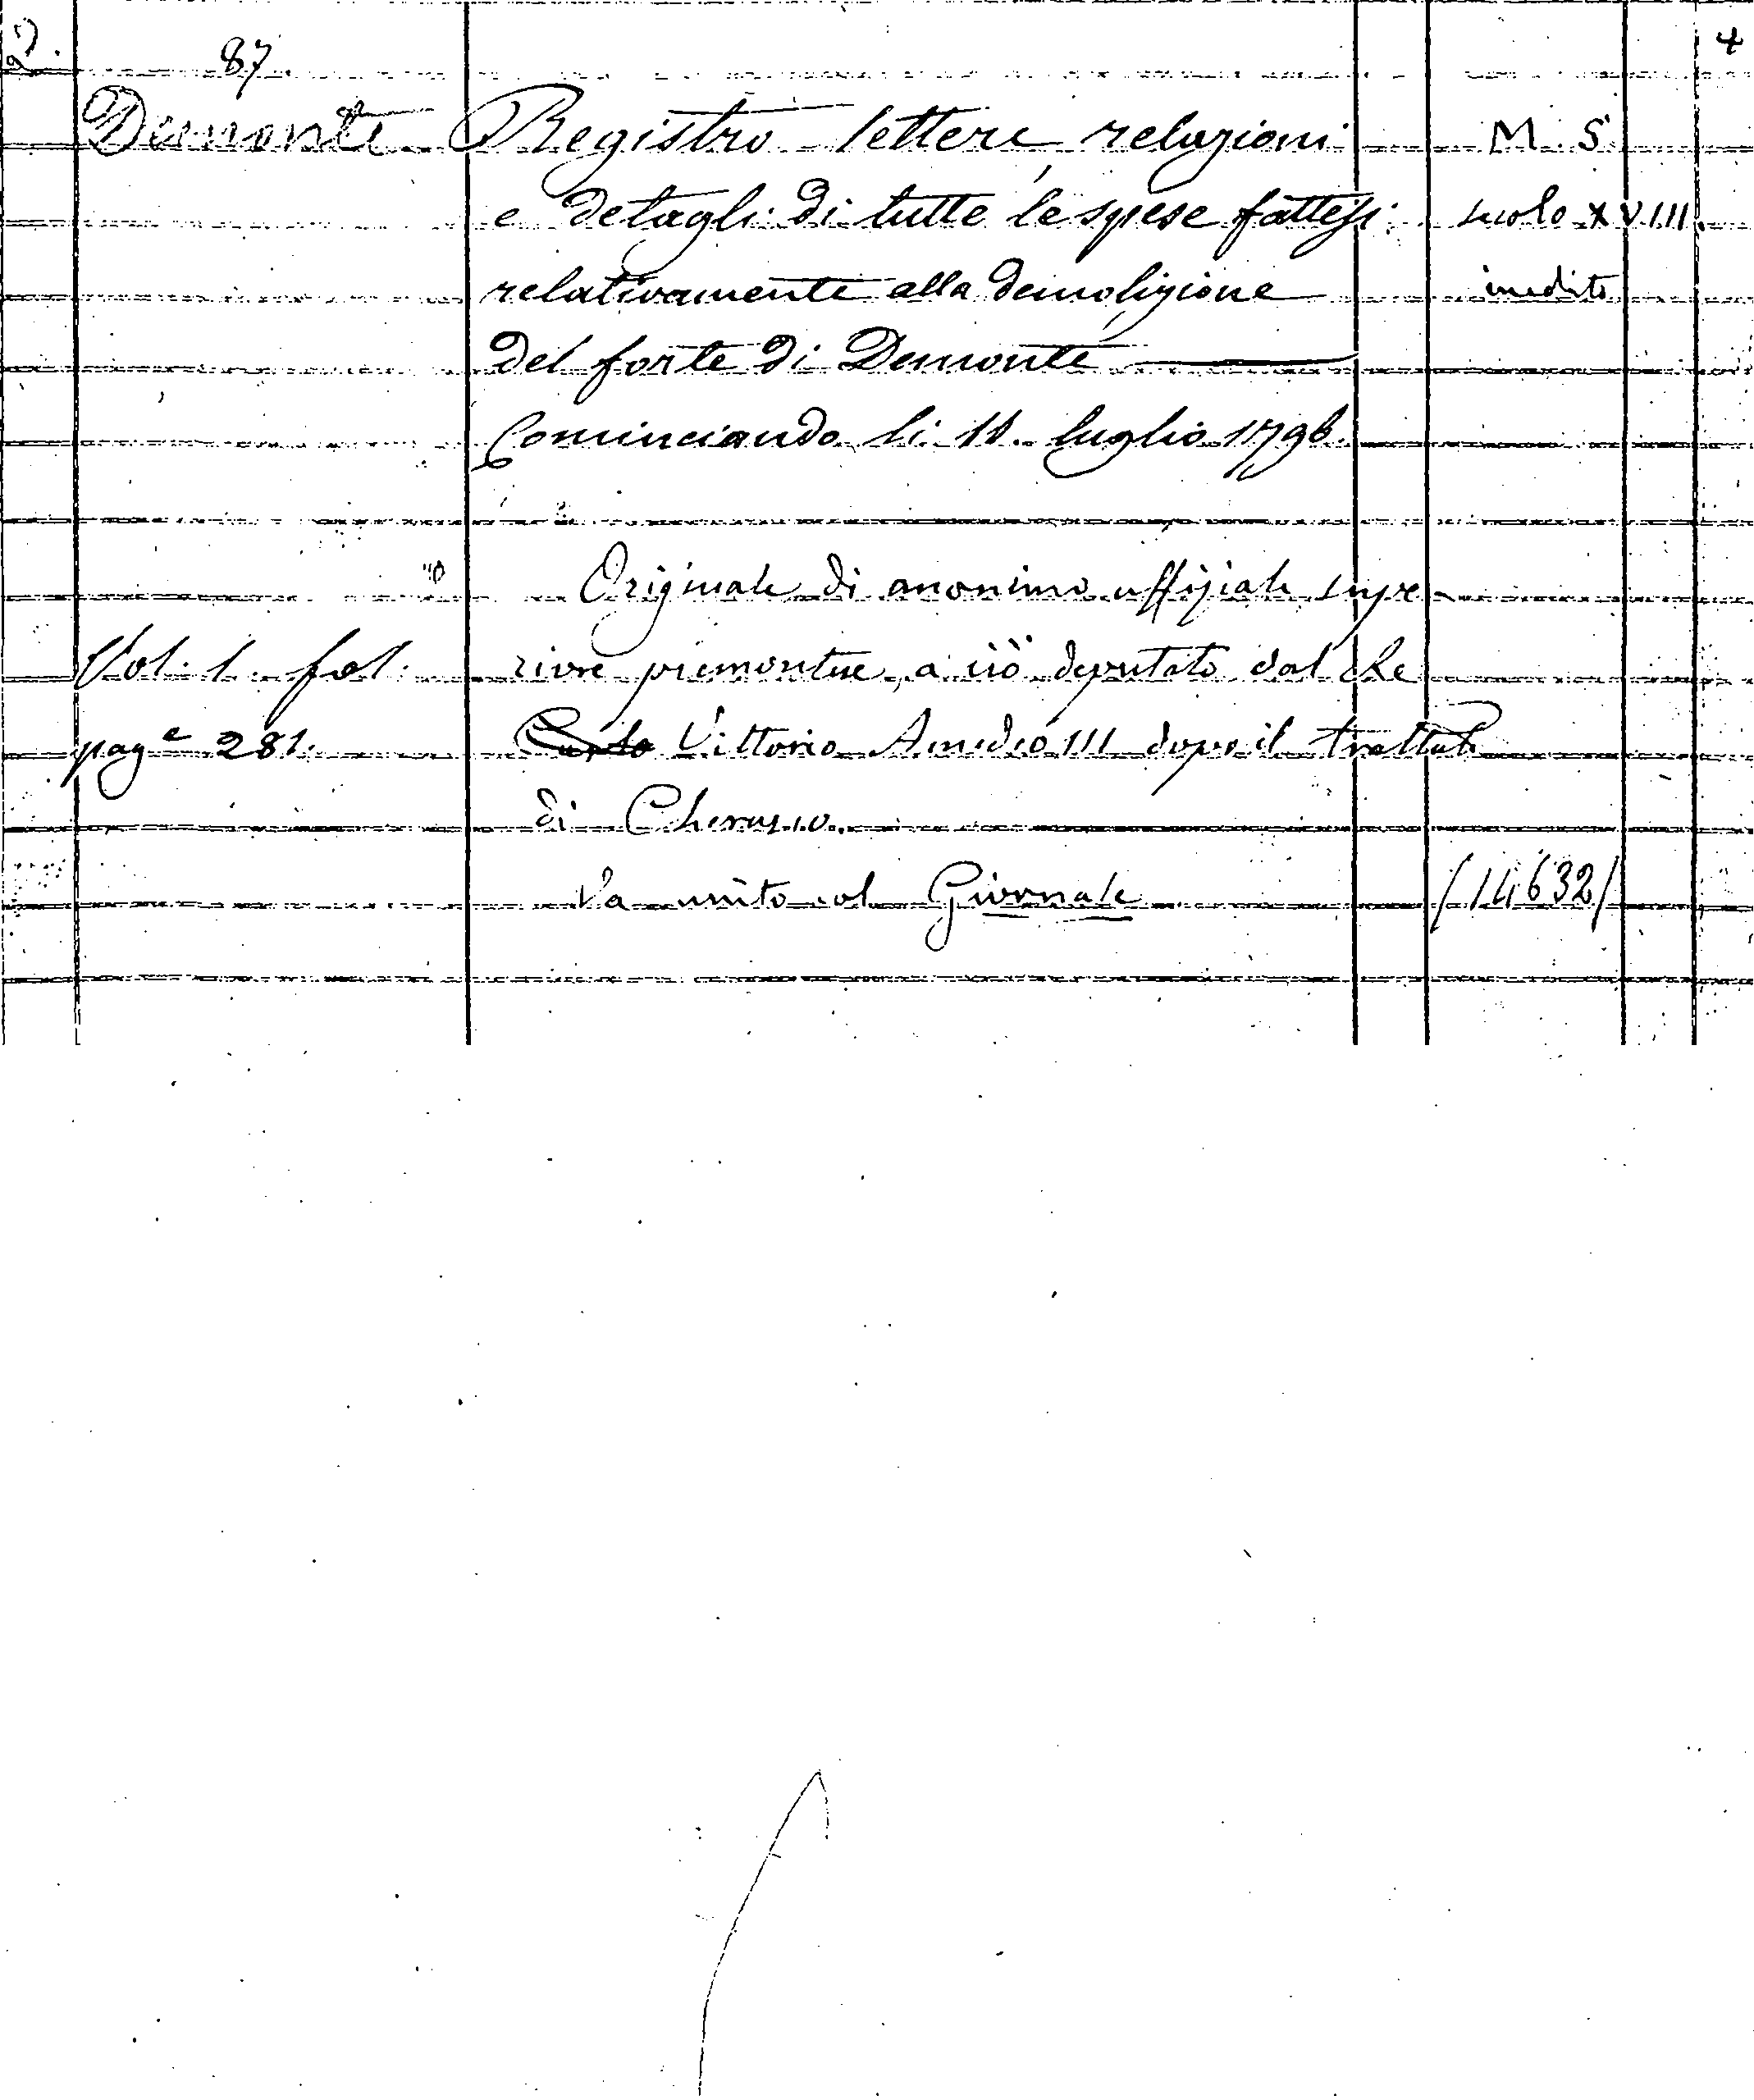 D. 87 4
Demonte Registro lettere, relazioni M. S.
e detagli di tutte le spese fattesi secolo XVIII.
relativamente alla demolizione inedito
del forte di Demonte
Cominciando li 11. luglio 1796.
Originale di anonimo uffiziale supe-
Vol. 1. fol. riore piemontese, a ciò deputato dal Re
pag.e 281. Carlo Vittorio Amedeo III dopo il trattato
di Cherasco.
Va unito col Giornale (14632)